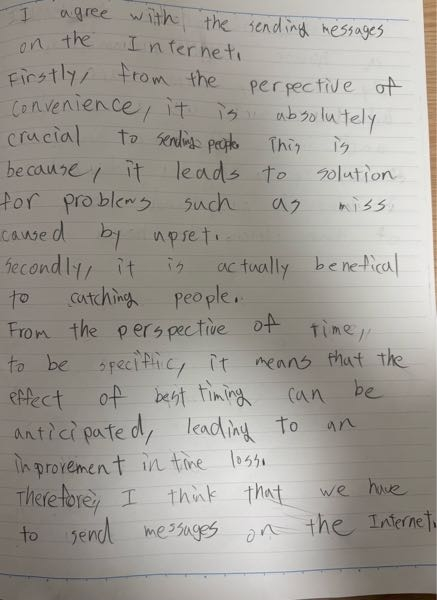 I agree with the sending messages
on the Internet.
Firstly, from the perpective of
convenience, it is absolutely
crucial to sending people. This is
because, it leads to solution
for problems such as miss
caused by upset.
Secondly, it is actually benefical
to catching people.
From the perspective of time,
to be speciftic, it means that the
effect of best timing can be
anticipated, leading to an
improrement in time loss.
Therefore, I think that we have
to send messages on the Internet.